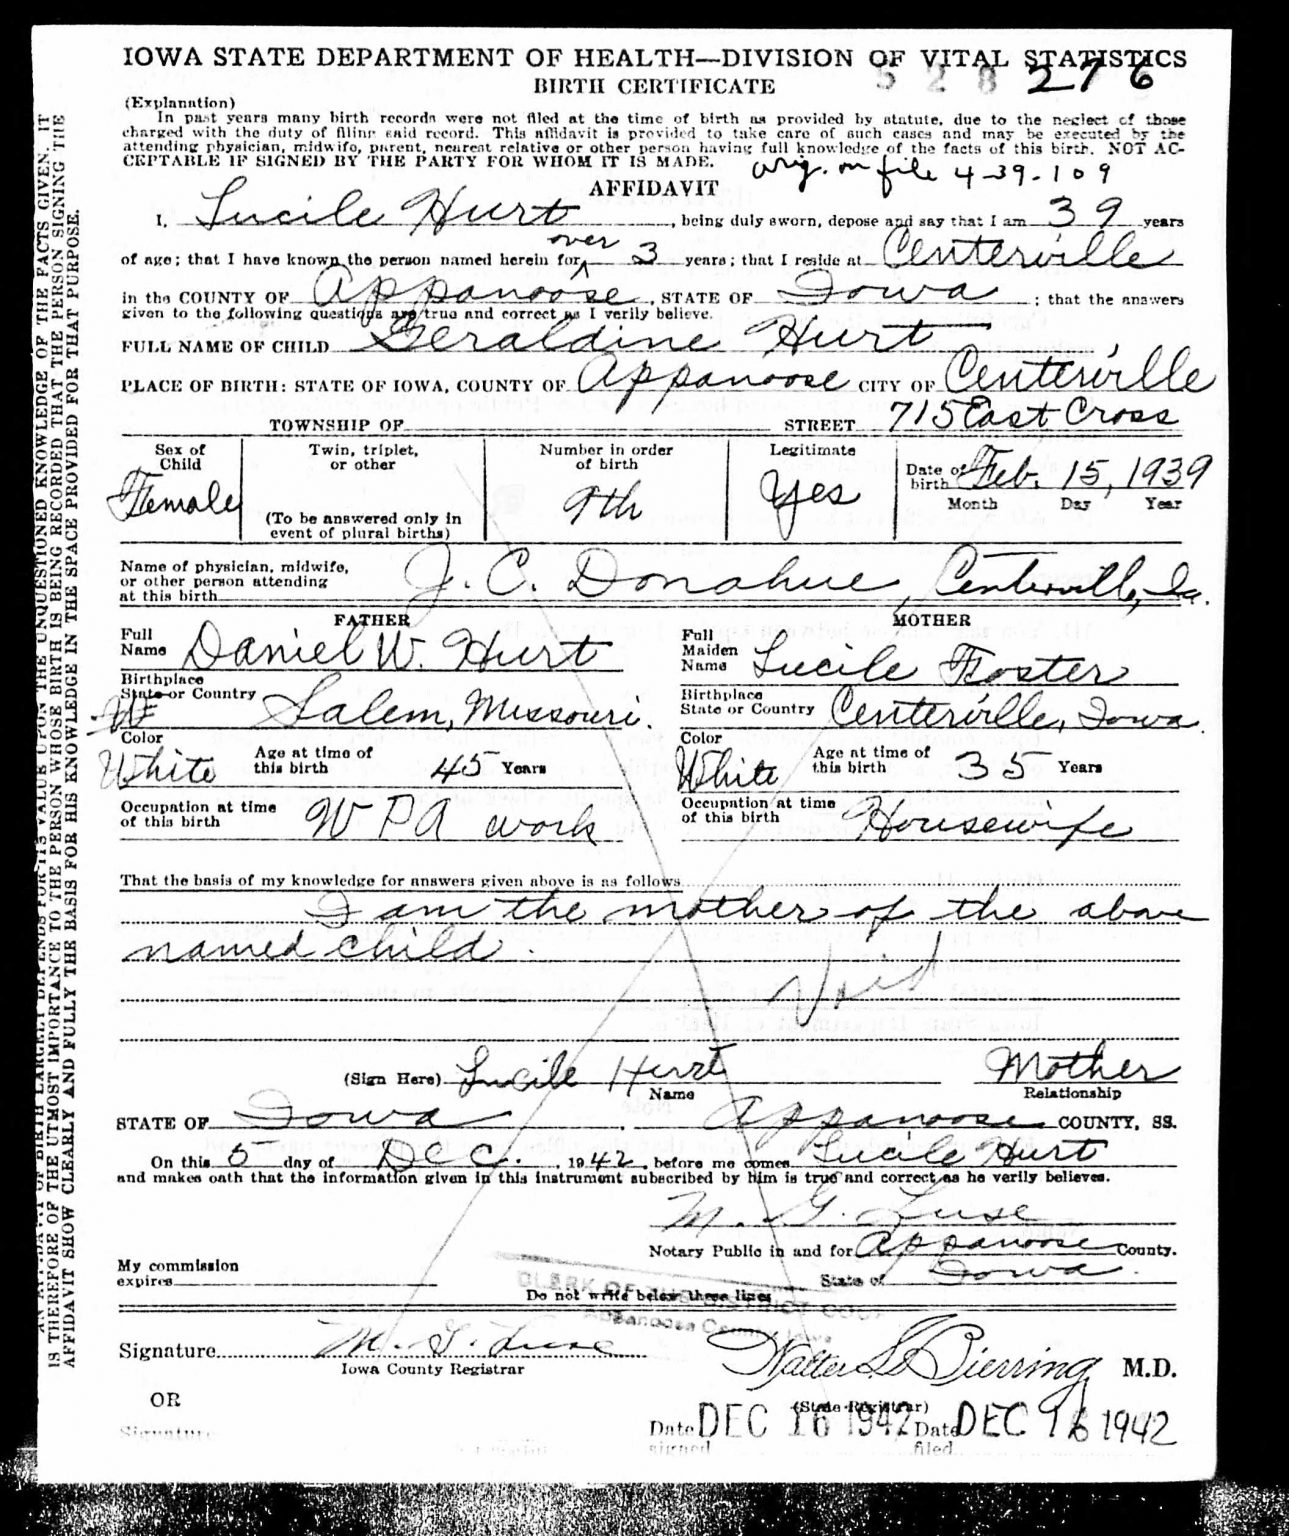 IOWA STATE DEPARTMENT OF HEALTH—DIVISION OF VITAL STATISTICS
BIRTH CERTIFICATE
528 276
(Explanation)
In past years many birth records were not filed at the time of birth as provided by statute, due to the neglect of those
charged with the duty of filing said record. This affidavit is provided to take care of such cases and may be executed by the
attending physician, midwife, parent, nearest relative or other person having full knowledge of the facts of this birth. NOT AC-
CEPTABLE IF SIGNED BY THE PARTY FOR WHOM IT IS MADE.
orig. on file 4-39-109
AFFIDAVIT
I, Lucile Hurt, being duly sworn, depose and say that I am 39 years
of age; that I have known the person named herein for over 3 years; that I reside at Centerville
in the COUNTY OF Appanoose, STATE OF Iowa; that the answers
given to the following questions are true and correct as I verily believe.
FULL NAME OF CHILD Geraldine Hurt,
PLACE OF BIRTH: STATE OF IOWA, COUNTY OF Appanoose CITY OF Centerville
TOWNSHIP OF STREET 715 East Cross
Sex of Child Female
Twin, triplet, or other
(To be answered only in event of plural births)
Number in order of birth 9th
Legitimate Yes
Date of birth Feb. 15, 1939
Month Day Year
Name of physician, midwife,
or other person attending
at this birth J. C. Donahue, Centerville, Ia.
FATHER MOTHER
Full Name Daniel W. Hurt
Full Maiden Name Lucile Foster
Birthplace State or Country Salem, Missouri.
Birthplace State or Country Centerville, Iowa.
Color White Age at time of this birth 45 Years
Color White Age at time of this birth 35 Years
Occupation at time of this birth WPA work
Occupation at time of this birth Housewife
That the basis of my knowledge for answers given above is as follows
I am the mother of the above
named child.
Void
(Sign Here) Lucile Hurt Mother
Name Relationship
STATE OF Iowa, Appanoose COUNTY, SS.
On this 5 day of Dec., 1942, before me comes Lucile Hurt
and makes oath that the information given in this instrument subscribed by him is true and correct as he verily believes.
M. G. Luse
Notary Public in and for Appanoose County.
My commission expires State of Iowa.
CLERK OF THE DISTRICT COURT
Appanoose County, Iowa
Do not write below these lines
Signature M. G. Luse
Iowa County Registrar
Walter L Bierring M.D.
(State Registrar)
OR
Signature
Date signed DEC 16 1942 Date filed DEC 16 1942
IS THEREFORE OF THE UTMOST IMPORTANCE TO THE PERSON WHOSE BIRTH IS BEING RECORDED THAT THE PERSON SIGNING THE
AFFIDAVIT SHOW CLEARLY AND FULLY THE BASIS FOR HIS KNOWLEDGE IN THE SPACE PROVIDED FOR THAT PURPOSE.